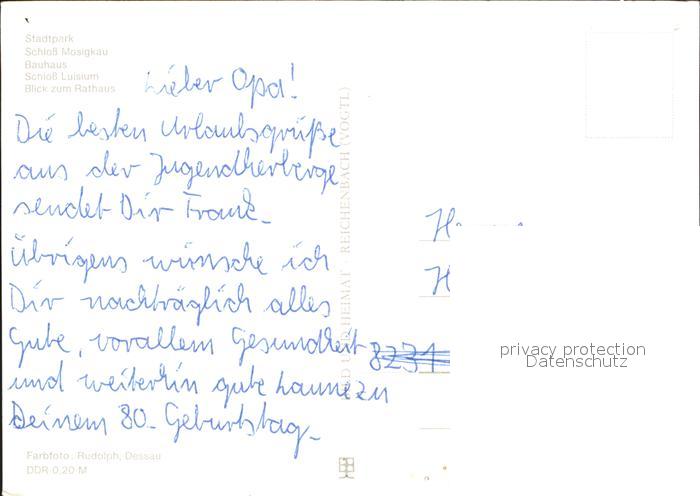 Stadtpark
Schloß Mosigkau
Bauhaus
Schloß Luisium
Blick zum Rathaus
Lieber Opa!
Die besten Urlaubsgrüße
aus der Jugendherberge
sendet Dir Frank.
Übrigens wünsche ich
Dir nachträglich alles
Gute, vorallem Gesundheit
und weiterhin gute Laune zu
Deinem 80. Geburtstag.
Farbfoto: Rudolph, Dessau
DDR 0,20 M
REICHENBACH (VOGTL)
H
H
privacy protection
Datenschutz